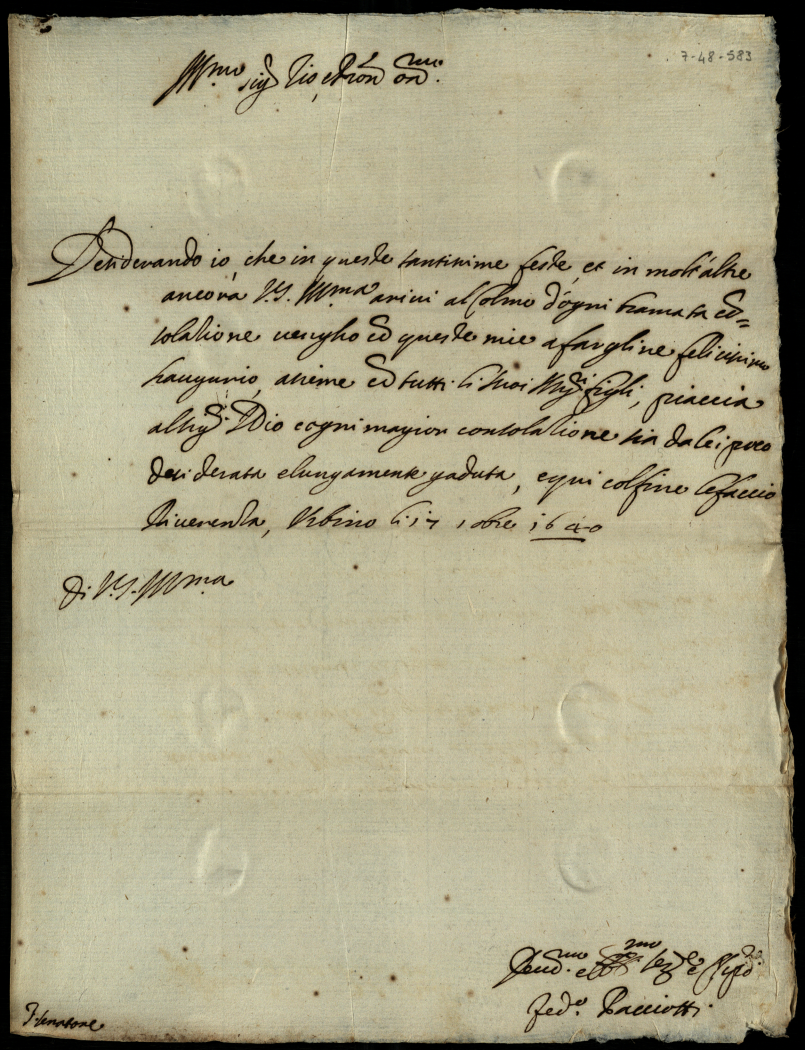 7-48-583
Ill.mo sig.r Zio, e Pron on.mo
Desiderando io, che in queste santissime feste, et in molt'altre
ancora V.S. Ill.ma arivi al colmo d'ogni bramata con=
solatione vengho con queste mie a fargline felicissimo
haugurio, asieme con tutti li suoi figli, piaccia
al Sig.r Dio e ogni magior consolatione sia da lei poco
desiderata e lungamente gaduta, e qui col fine le faccio
Riverenza, Urbino li 17 1640
Di V.S. Ill.ma
Fed.o Pacciotti